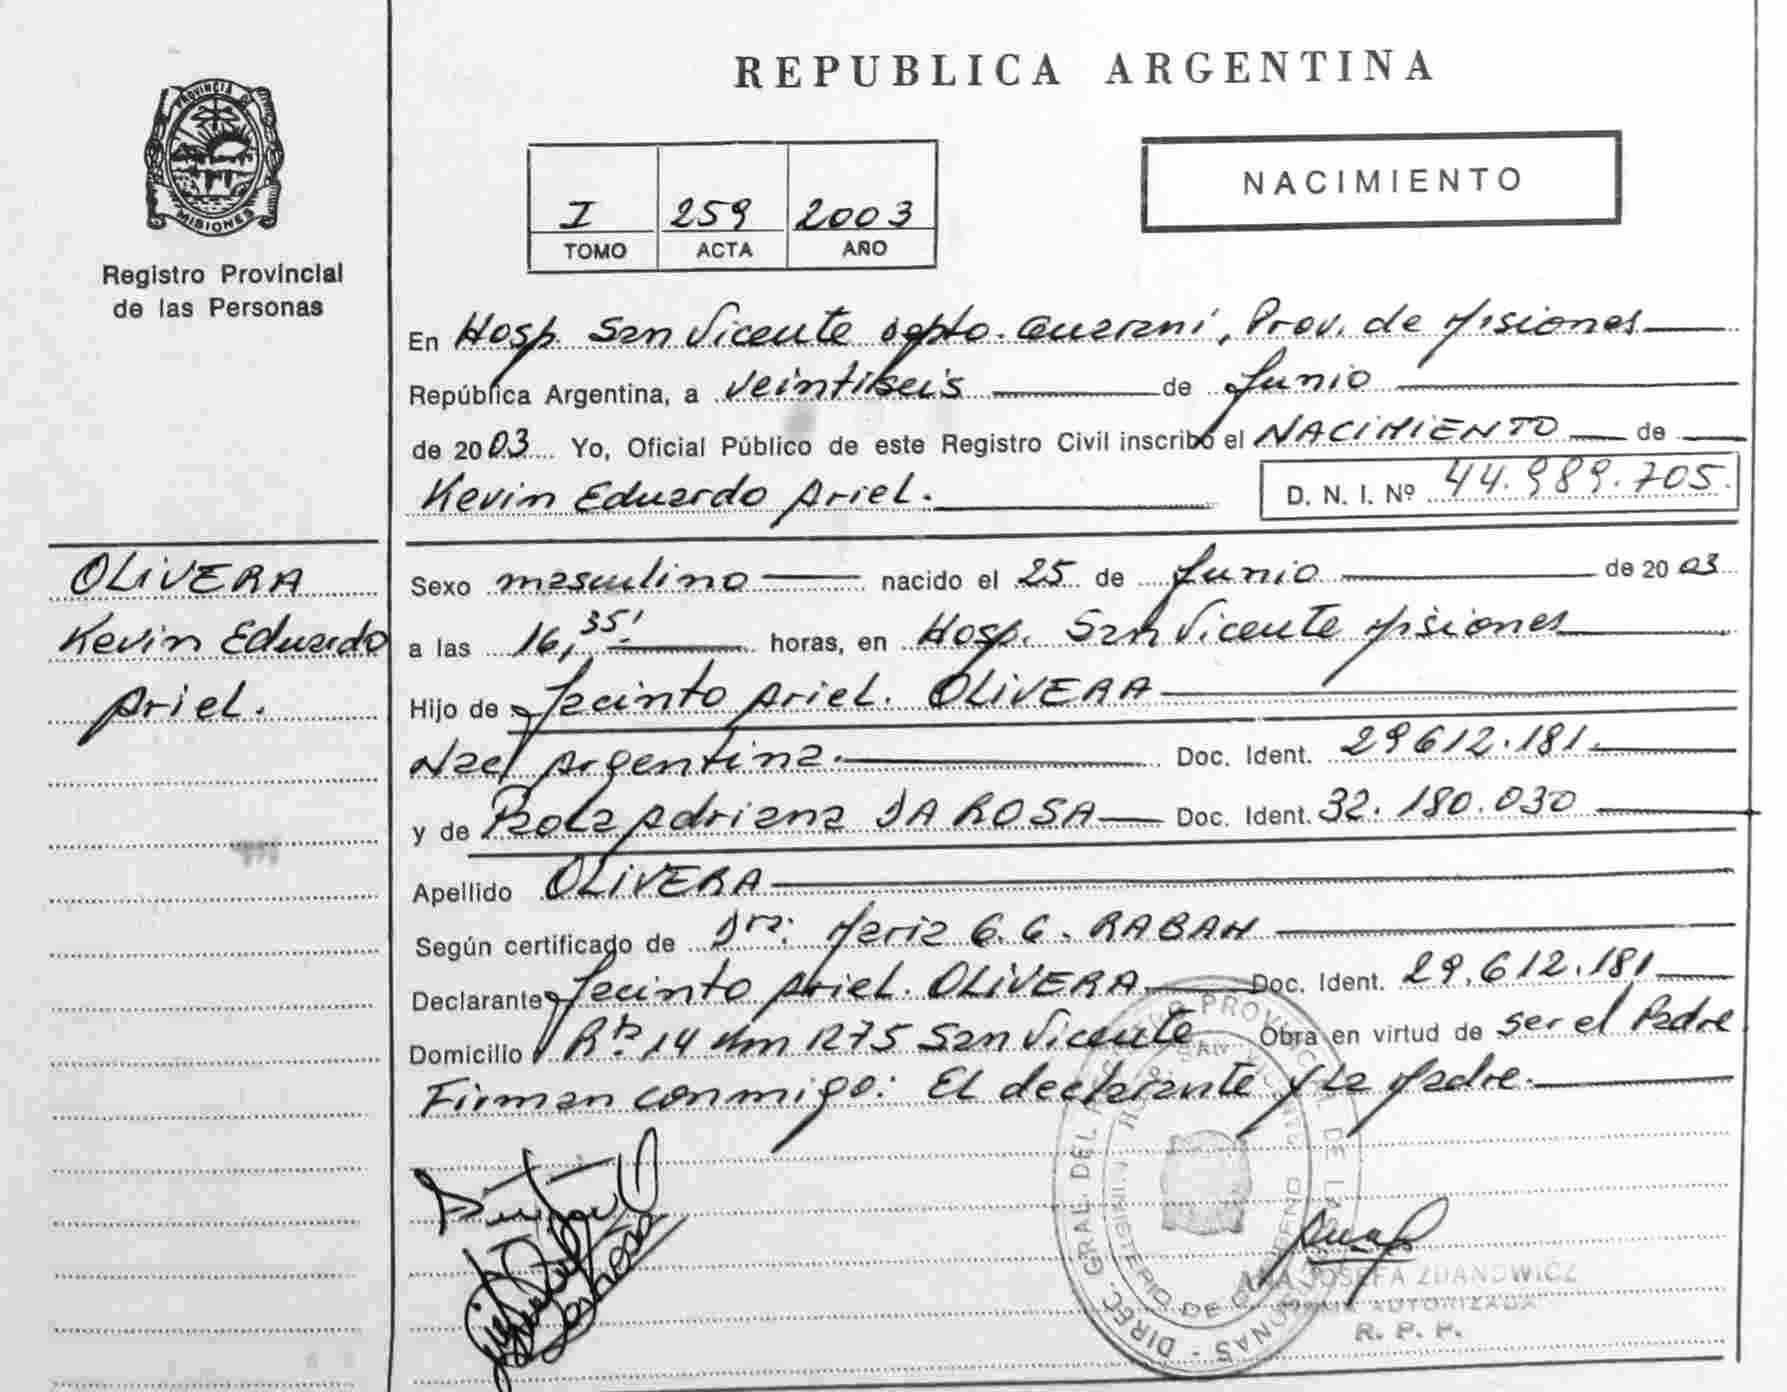 REPUBLICA ARGENTINA
PROVINCIA DE
MISIONES
Registro Provincial
de las Personas
I 259 2003
TOMO ACTA AÑO
NACIMIENTO
En Hosp. San Vicente Dpto. Guaraní, Prov. de Misiones
República Argentina, a veintiseis de Junio
de 2003 Yo, Oficial Público de este Registro Civil inscribo el NACIMIENTO de
Kevin Eduardo Ariel. D. N. I. Nº 44.989.705.
OLIVERA
Kevin Eduardo
Ariel.
Sexo masculino nacido el 25 de Junio de 2003
a las 16,35' horas, en Hosp. San Vicente Misiones
Hijo de Jacinto Ariel. OLIVERA
Nac. Argentina. Doc. Ident. 29612.181.
y de Paola Adriana DA ROSA Doc. Ident. 32.180.030
Apellido OLIVERA
Según certificado de Dra: Maria G. G. RABAH
Declarante Jacinto Ariel. OLIVERA Doc. Ident. 29.612.181
Domicilio Rta. 14 Km 1275 San Vicente Obra en virtud de ser el Padre
Firman conmigo: El declarante y la Madre.
DIREC. GRAL. DEL PROVINCIAL DE LAS PERSONAS
MINISTERIO DE GOBIERNO
ANA JOSEFA ZDANOWICZ
FIRMA AUTORIZADA
R. P. P.